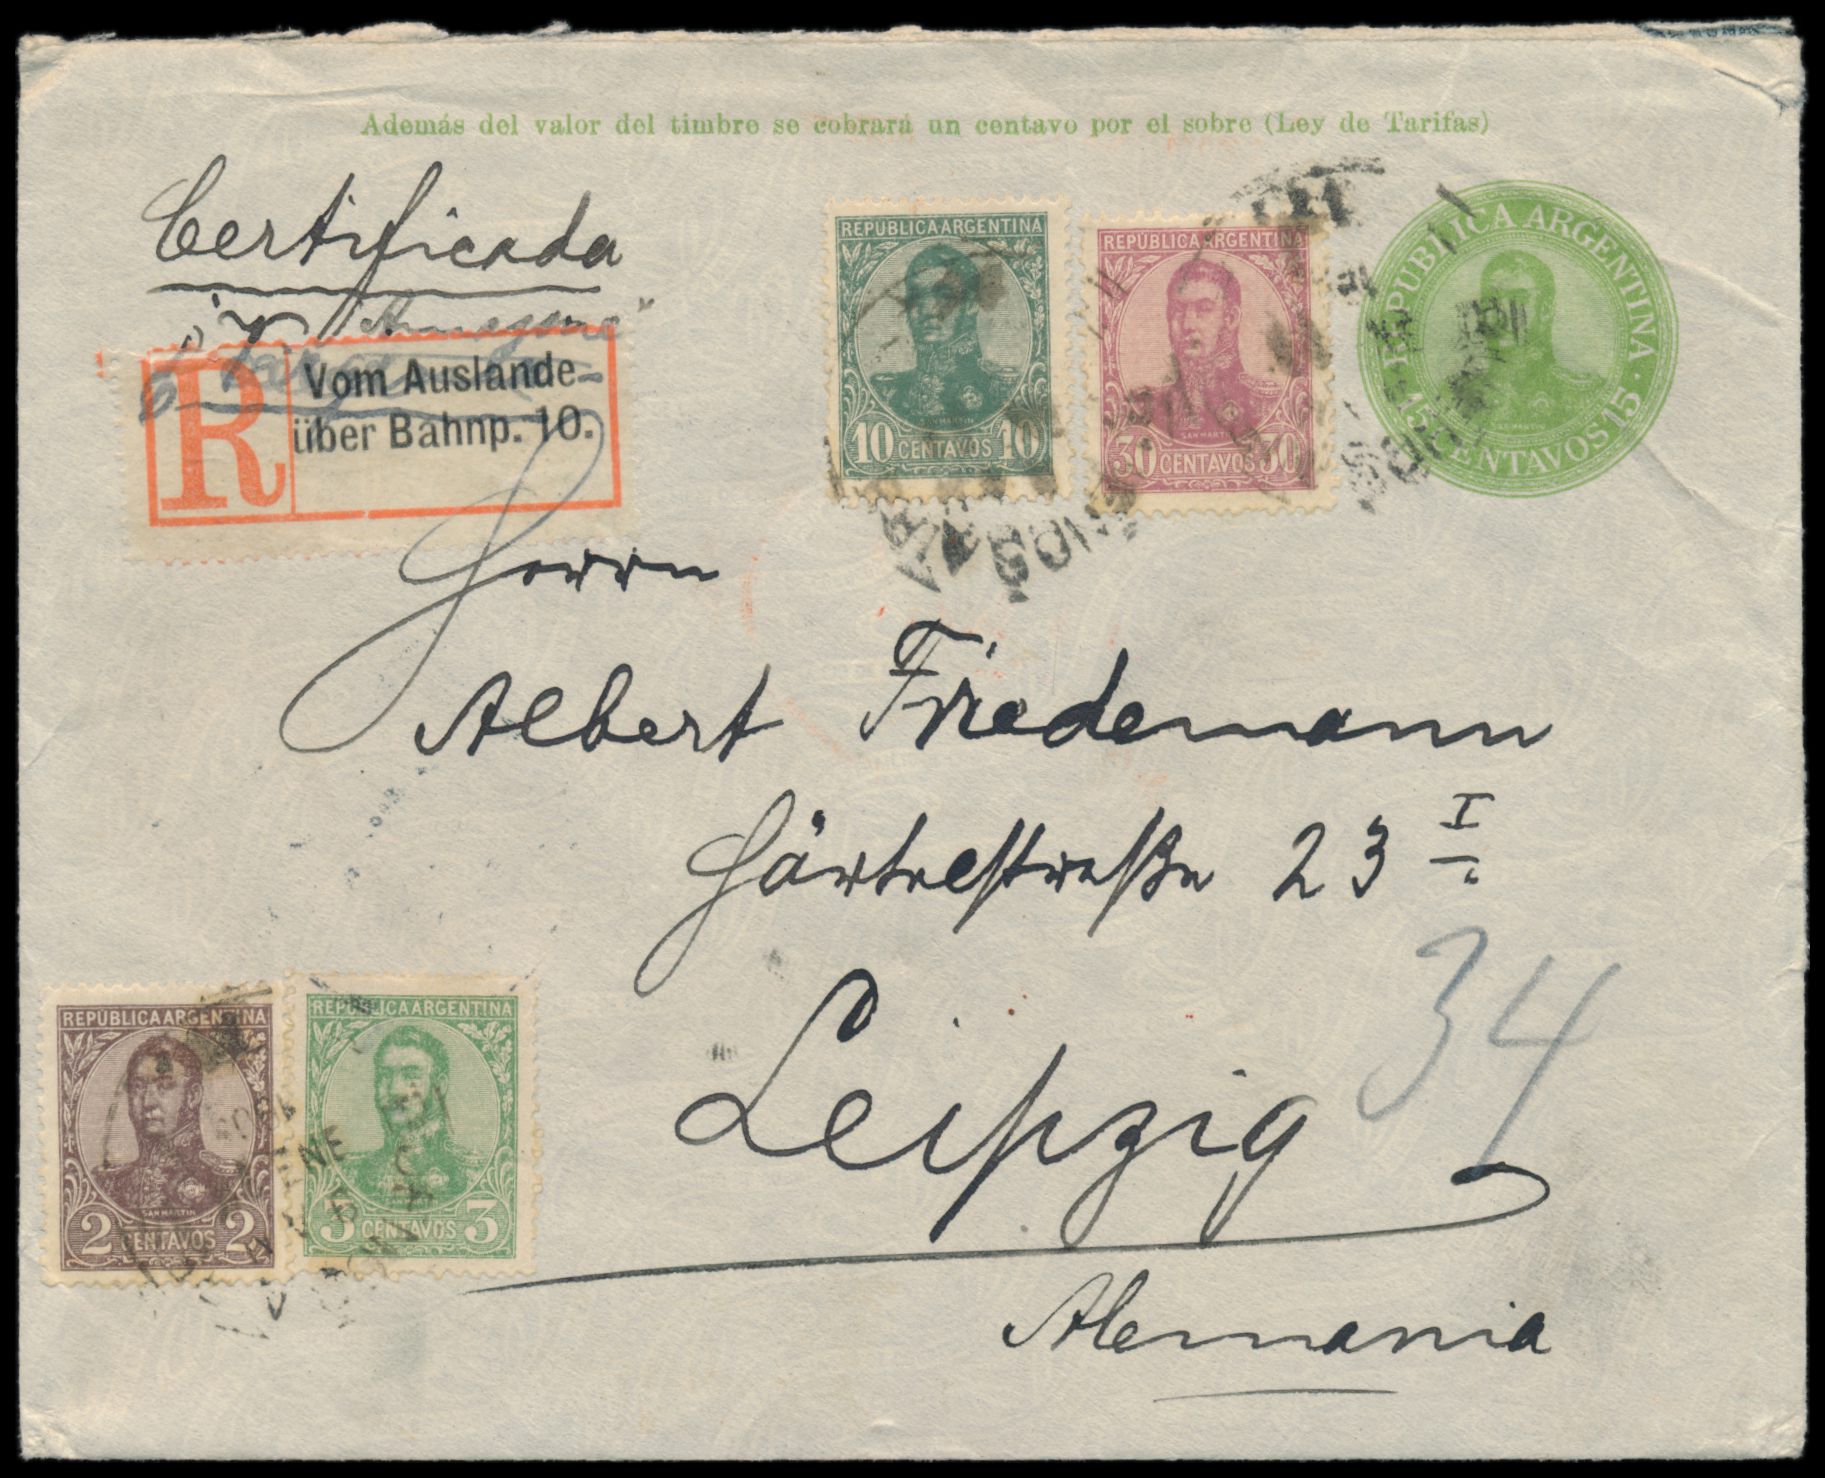 Además del valor del timbre se cobrará un centavo por el sobre (Ley de Tarifas)
Certificada
R
Vom Auslande
über Bahnp. 10.
REPÚBLICA ARGENTINA
SAN MARTIN
10 CENTAVOS 10
REPÚBLICA ARGENTINA
SAN MARTIN
30 CENTAVOS 30
REPUBLICA ARGENTINA
15 CENTAVOS 15
Herrn
Albert Friedemann
Härtelstraße 23 I
Leipzig
34
Alemania
REPÚBLICA ARGENTINA
SAN MARTIN
2 CENTAVOS 2
REPÚBLICA ARGENTINA
SAN MARTIN
3 CENTAVOS 3